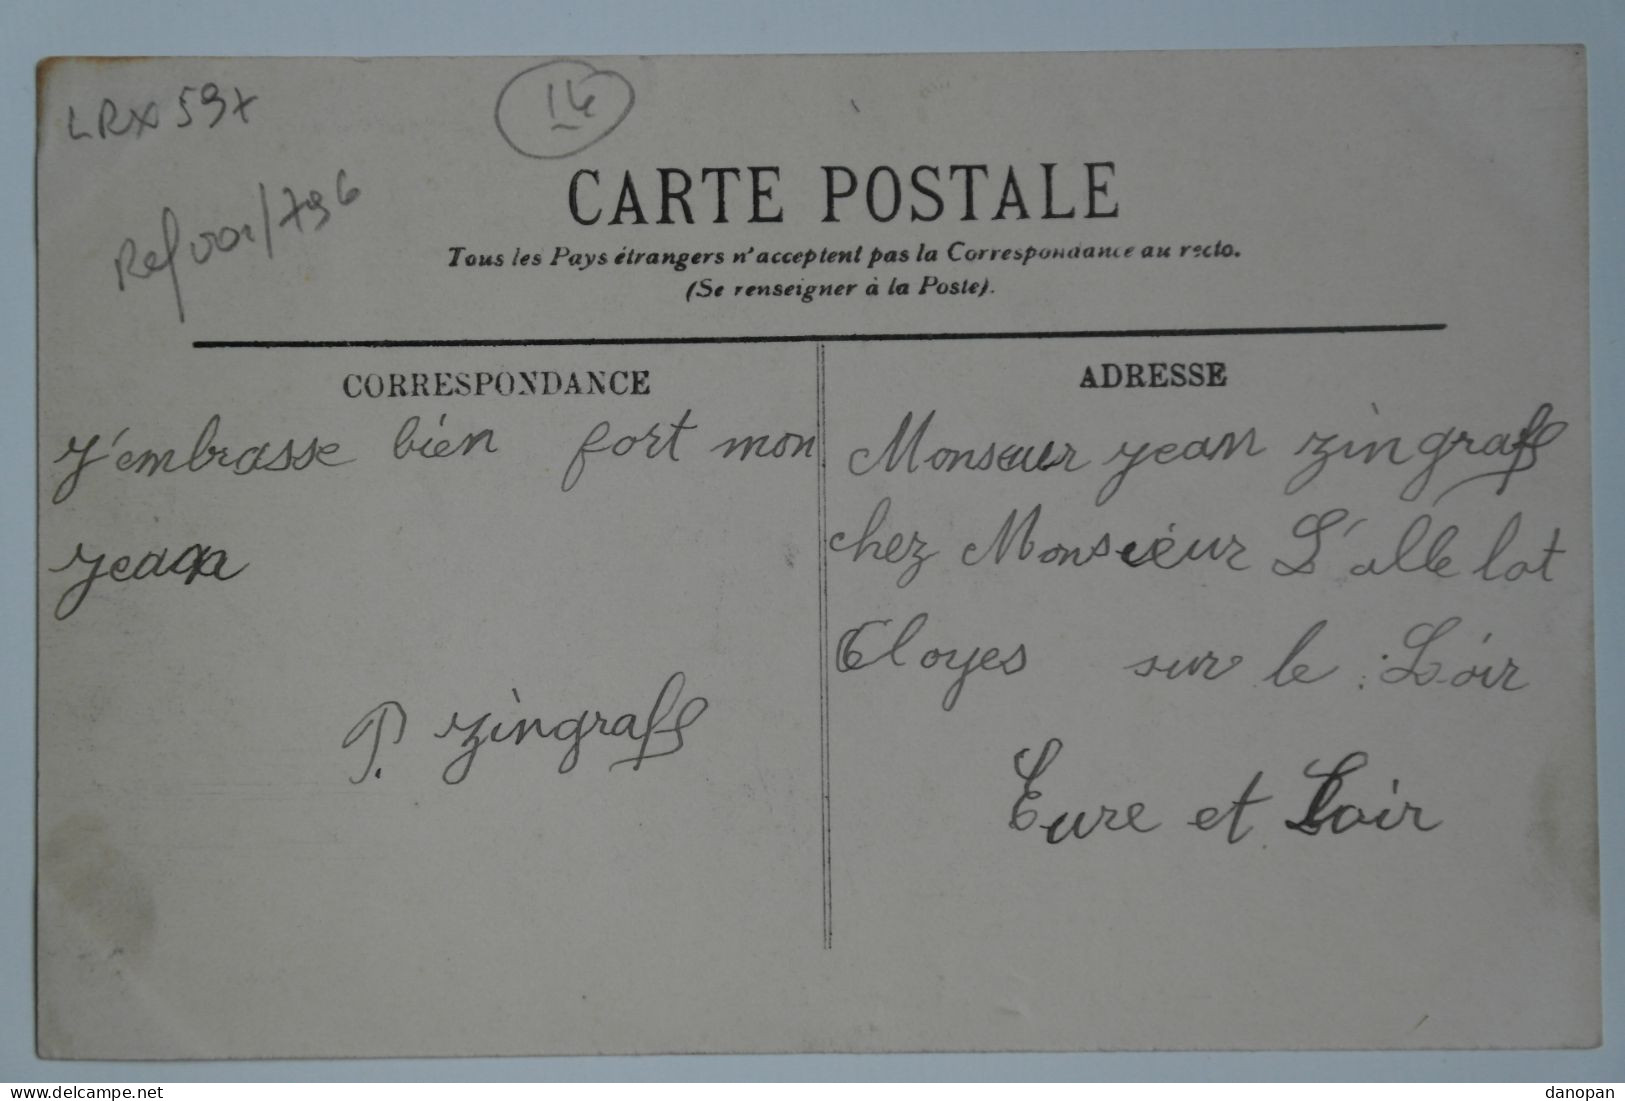 LRX 59x
14
Ref voir/796
CARTE POSTALE
Tous les Pays étrangers n'acceptent pas la Correspondance au recto.
(Se renseigner à la Poste).
CORRESPONDANCE
J'embrasse bien fort mon
Jean
P. Zingraff
ADRESSE
Monsieur Jean Zingraff
chez Monsieur L'allelot
Cloyes sur le Loir
Eure et Loir
delcampe.net
danopan